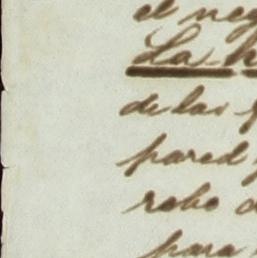 el neg
La h
de las
pared
robo
para